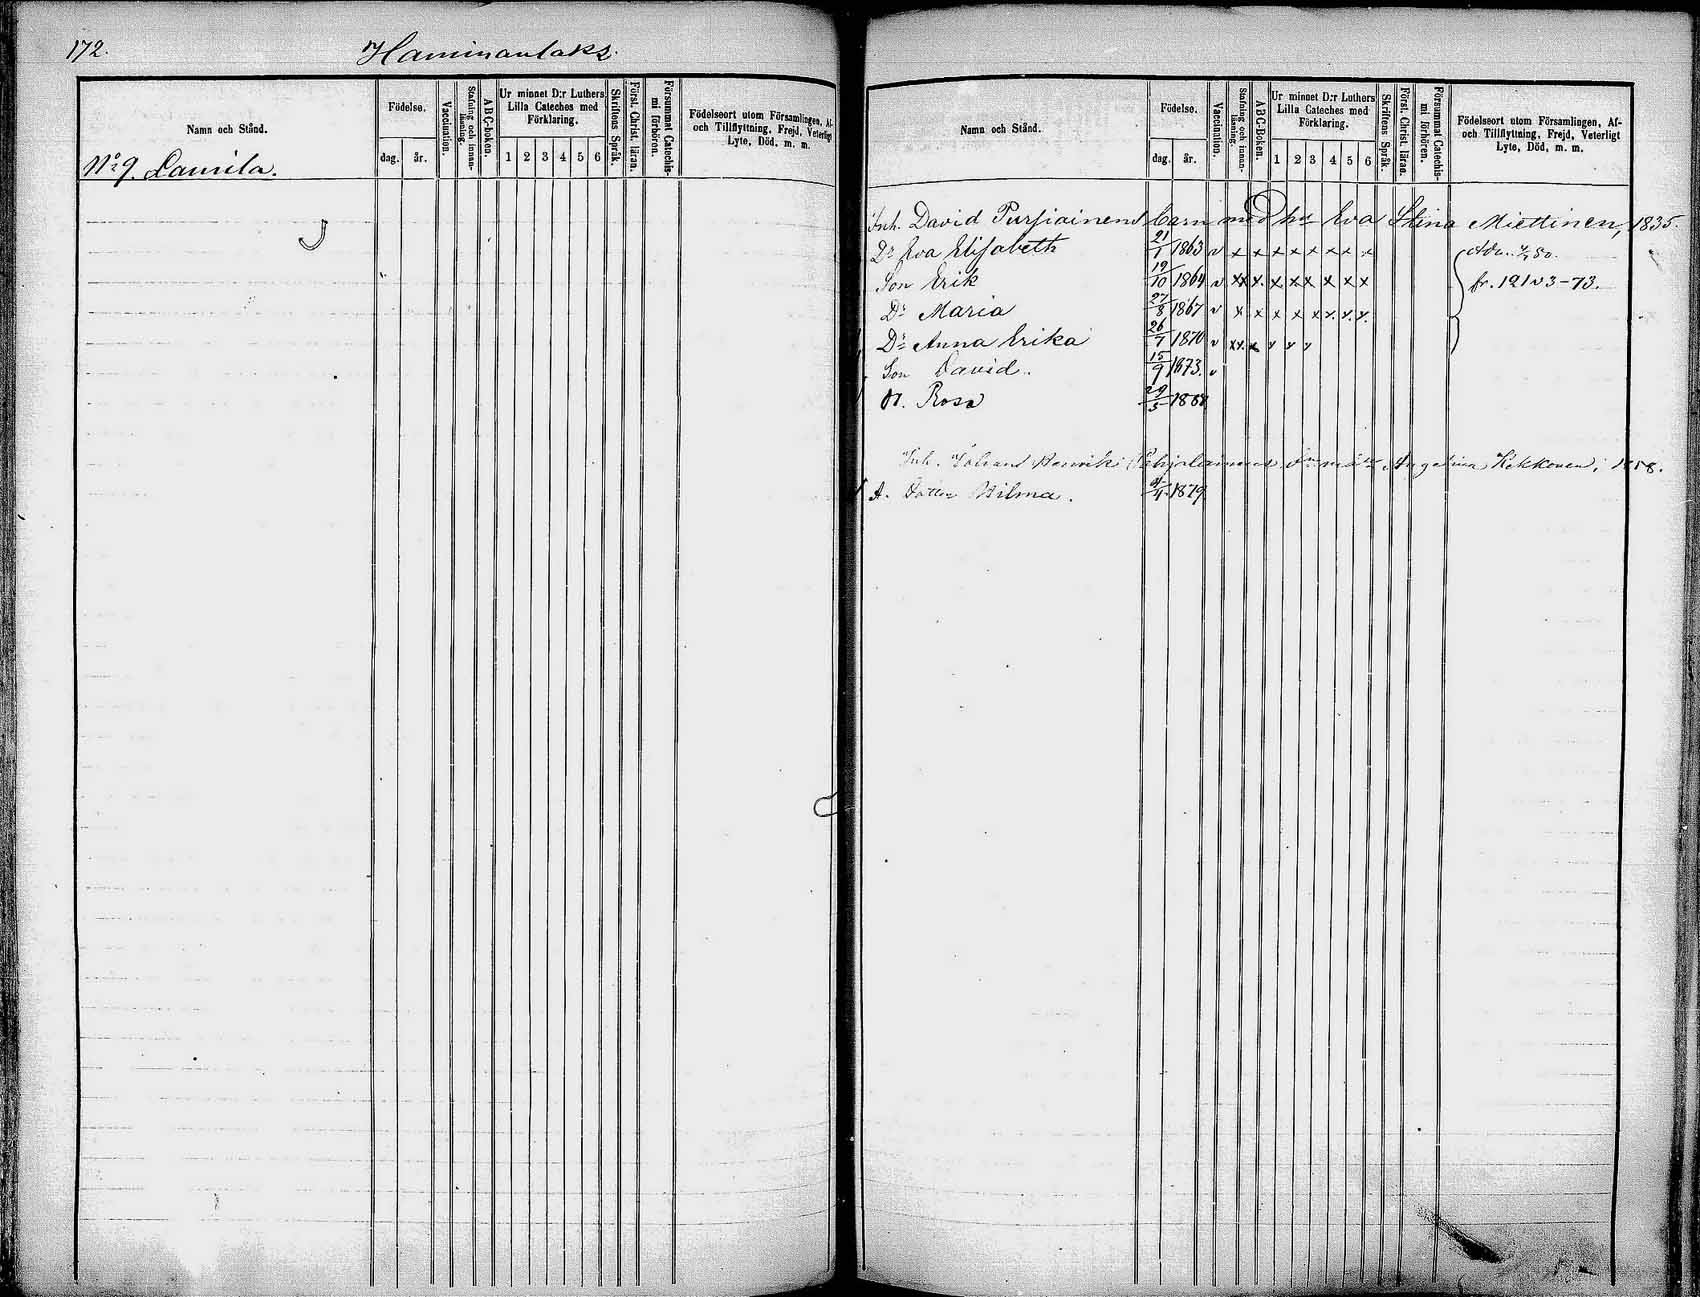 172. Haminanlaks.
Namn och Stånd.
Födelse.
dag. år.
Vaccination.
Stafning och innanläsning.
ABC-boken.
Ur minnet D:r Luthers Lilla Cateches med Förklaring.
1 2 3 4 5 6
Skriftens Språk.
Först. Christ. läran.
Försummat Catechismi förhören.
Födelseort utom Församlingen, Af- och Tillflyttning, Frejd, Veterligt Lyte, Död, m. m.
No 9. Laurila.
Namn och Stånd.
Födelse.
dag. år.
Vaccination.
Stafning och innanläsning.
ABC-Boken.
Ur minnet D:r Luthers Lilla Cateches med Förklaring.
1 2 3 4 5 6
Skriftens Språk.
Först. Christ. läran.
Försummat Catechismi förhören.
Födelseort utom Församlingen, Af- och Tillflyttning, Frejd, Veterligt Lyte, Död, m. m.
Inh. David Pursiainens barn med hu Eva Stina Miettinen, 1835.
Dr Eva Elisabeth 21/1 1863 v x x x x x x x x
Son Erik 19/10 1864 v xx x. x x x x x x fr. 121 v 3-73.
Dr Maria 27/8 1867 v x x x x x x. x. x.
Dr Anna Erika 26/7 1870 v xx. x x x x
Son David. 15/9 1873. v
Rosa 1881
Inh. Johant Henrik Angelina Kekkonen, 1858.
Dotter Wilma. 1879